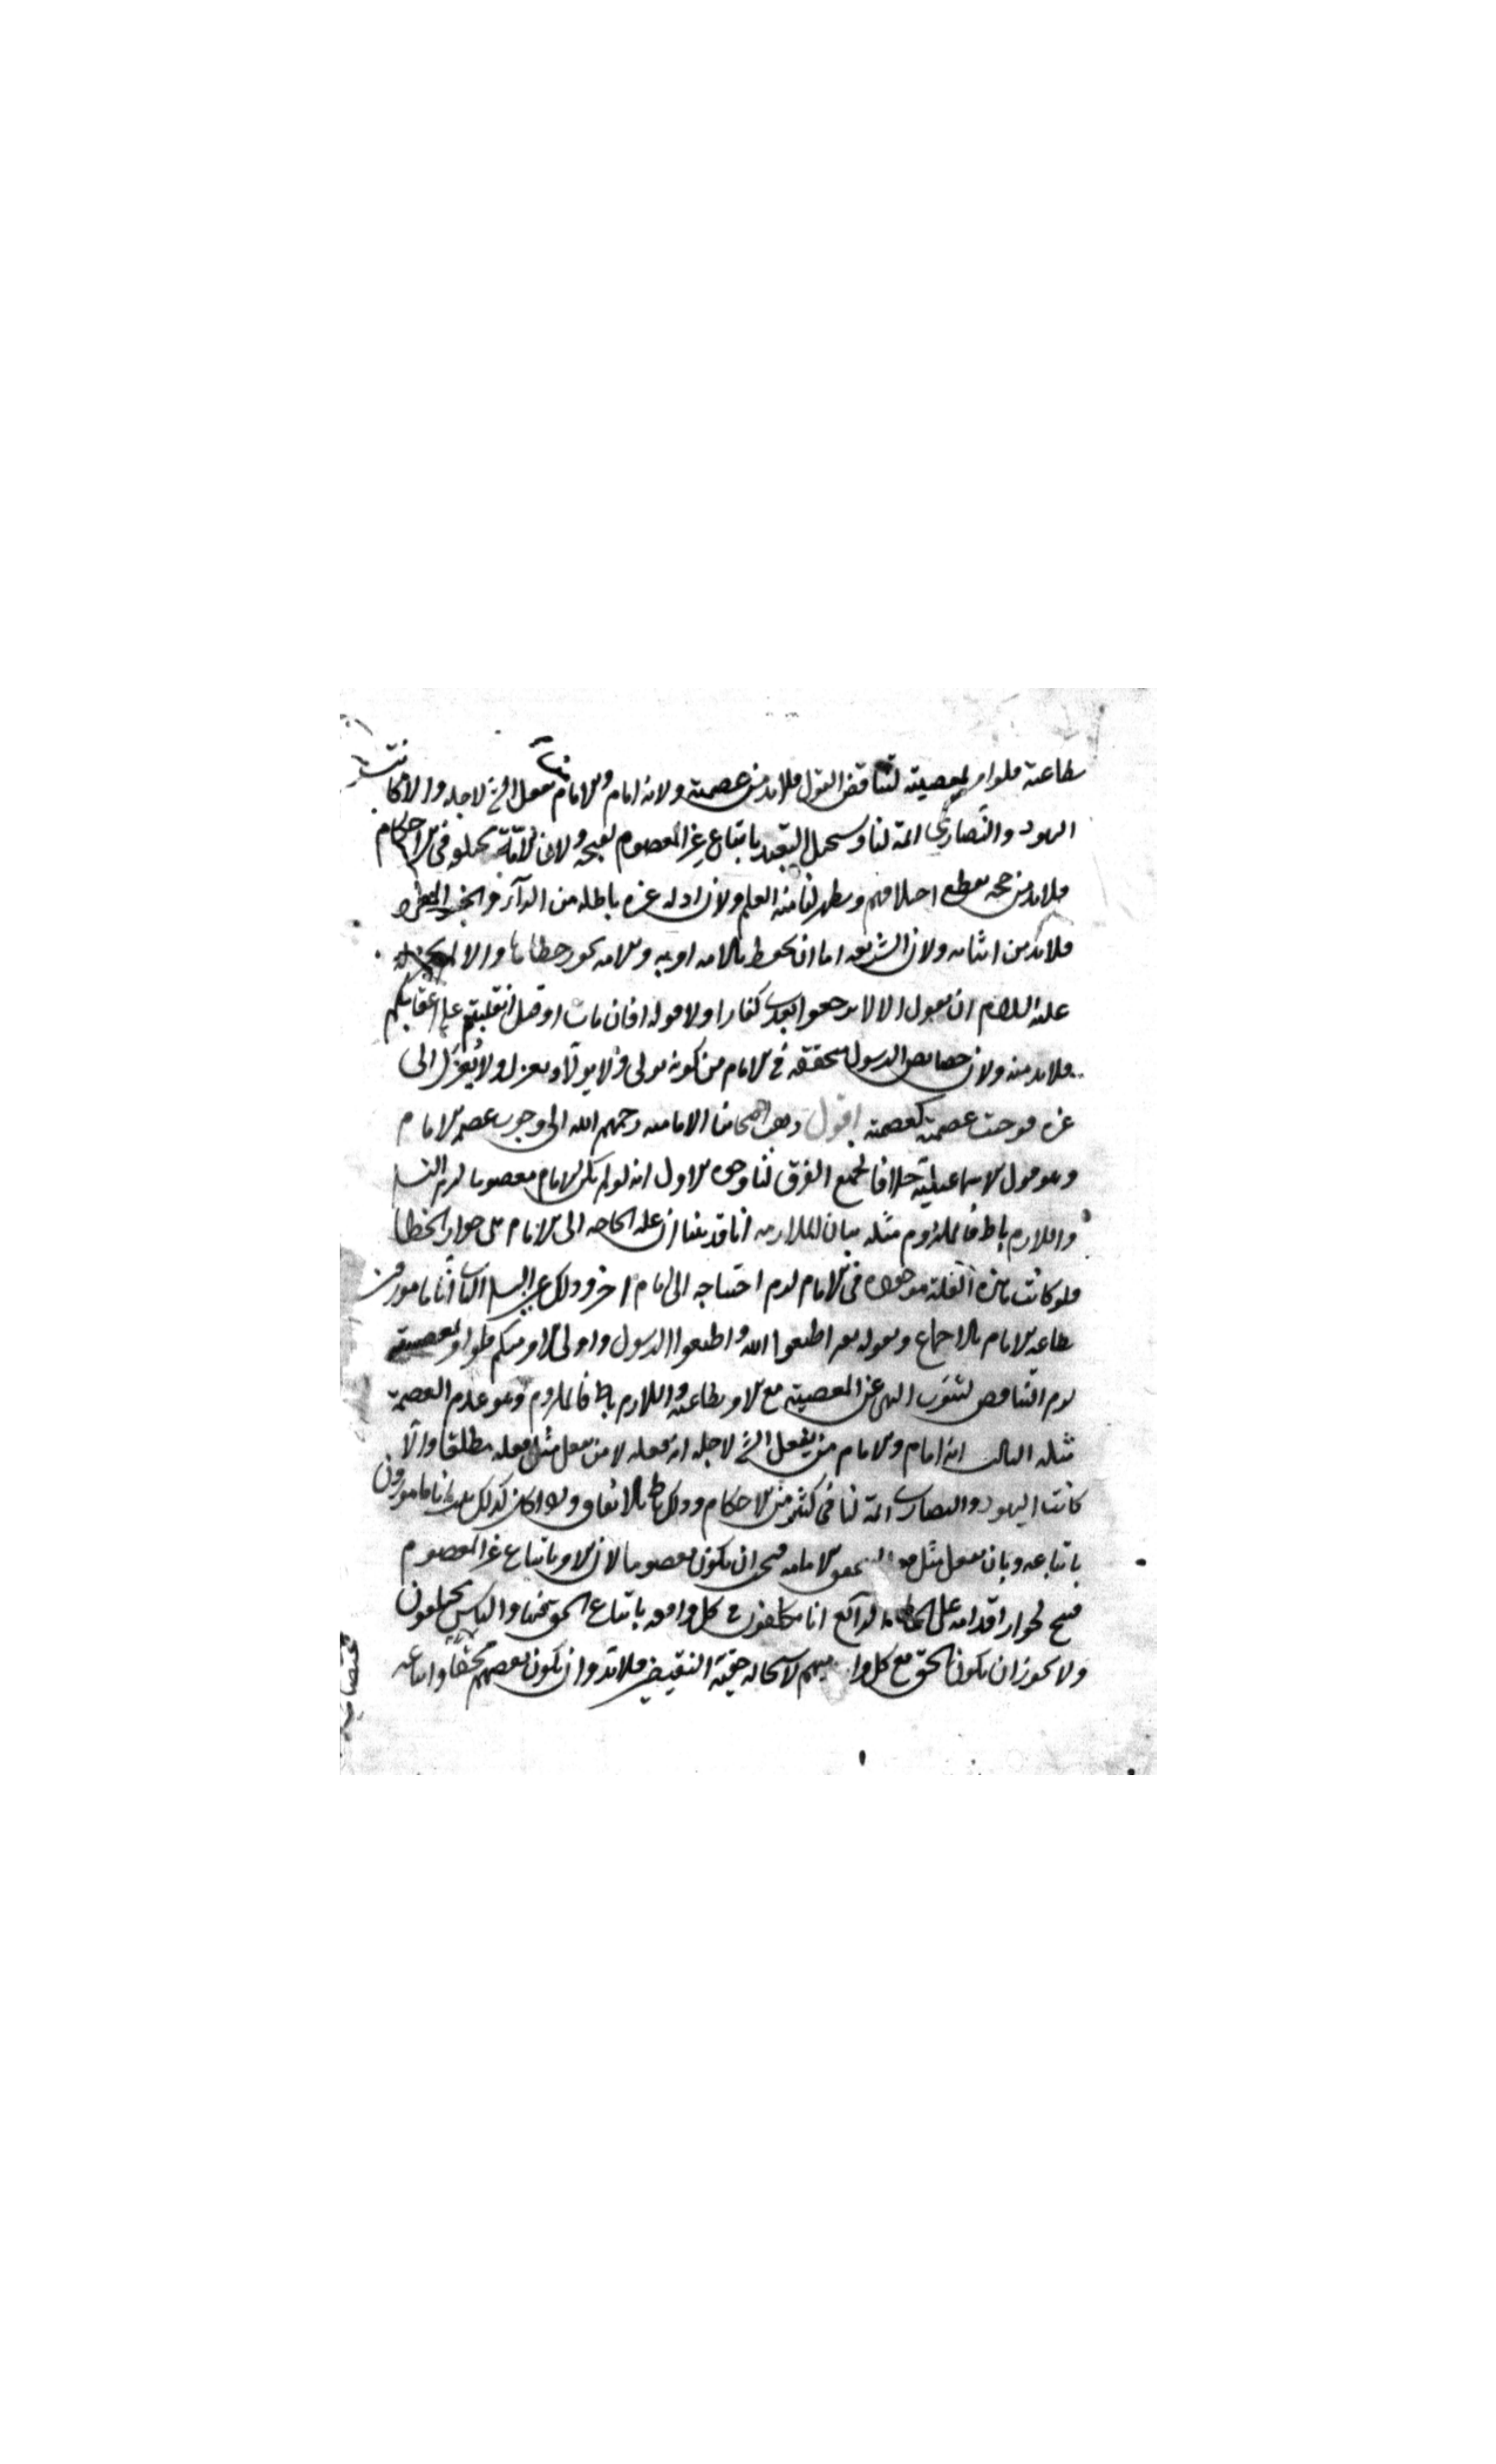 بطاعته فلو امر بمعصيته لتناقض القول فلابد من عصمته ولانه امام والامام من يفعل الشي لاجله والا كانت
اليهود والنصارى ائمة لنا ويستحيل التعبد باتباع غير المعصوم لقبحه ولان الامة تختلف في الاحكام
فلابد من حجه يقطع اختلافهم ويظهر لنا منه العلم ولان ادلة غيره باطله من الدائر والخبر
فلابد من اثباته ولان الشريعه اما ان تحفظ بالامه او به والامه يجوز خطاها والا لم يجز له
عليه السلام ان يقول الا لا ترجعوا بعدي كفارا ولا قوله افان مات او قتل انقلبتم على اعقابكم
فلابد منه ولان خصايص الرسول متحققه في الامام من كونه يولي ولا يولا ويعزل ولا يعزل الى
غيره فوجبت عصمته كعصمته اقول ذهب اصحابنا الاماميه رحمهم الله الى وجوب عصمه الامام
وهو قول الاسماعيلية خلافا لجميع الفرق لنا وجوه الاول انه لو لم يكن الامام معصوما لزم التسلسل
واللازم باطل فالملزوم مثله بيان الملازمه انا قد بينا ان عله الحاجه الى الامام هي جواز الخطا
فلو كانت هذه العلة موجوده في الامام لزم احتياجه الى امام اخر وذلك عين التسلسل الثاني انا مامورون
بطاعه الامام بالاجماع وبقوله تعالى اطيعوا الله واطيعوا الرسول واولي الامر منكم فلو امر بمعصيته
لزم التناقض لثبوت النهي عن المعصية مع الامر بطاعته واللازم باطل فالملزوم وهو عدم العصمة
مثله الثالث انه امام والامام من يفعل الشي لاجل انه فعله لا من يفعل مثل فعله مطلقا والا
كانت اليهود والنصارى ائمة لنا في كثير من الاحكام وذلك باطل بالاتفاق واذا كان كذلك فانا مامورون
باتباعه وبان نفعل مثل فعله امامه فيجب ان يكون معصوما لان الامر باتباع غير المعصوم
قبيح لجواز اقدامه على الخطا الرابع انا مكلفون في كل واقعه باتباع الحق فيها والناس مختلفون
ولا يجوز ان يكون الحق مع كل واحد منهم لاستحاله حقية النقيضين فلابد وان يكون بعضهم محقا واتباعه